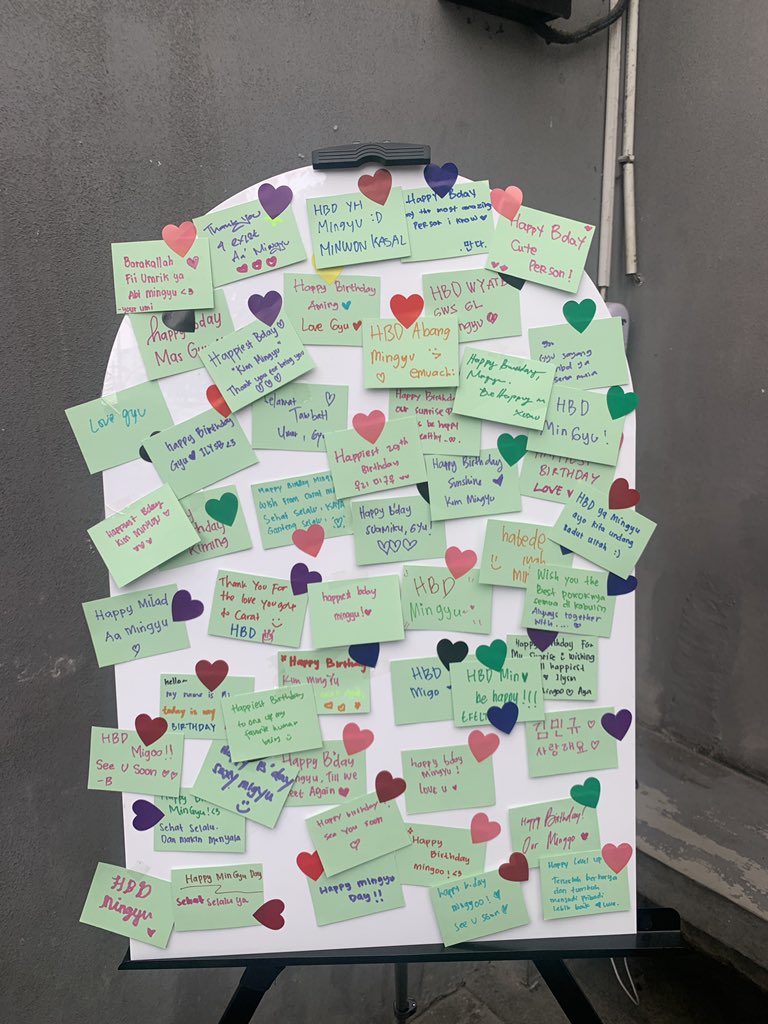 Thank you
4 exist
Aa' Mingyu
HBD YH
Mingyu :D
MINWON KASAL
Happy Bday
my the most amazing
Person i know
Happy Bday
Cute
Person!
Barakallah
Fii Umrik ya
Abi mingyu <3
-your umi
Happy Birthday
Aming
Love Gyu
HBD
GWS GL
happy bday
Mas
Happiest Bday
"Kim Mingyu"
Thank you for being you
HBD Abang
Mingyu
emuach:
Happy Birthday,
Mingyu.
Be Happy
Gyu sayang
HBD
MinGyu!
Love gyu
Happy Birthday
Gyu ILYSB <3
Selamat
Happy Birthday
our sunrise
be happy
Happiest 29th
Birthday
우리 미규
Happy Birthday
Sunshine
Kim Mingyu
BIRTHDAY
LOVE
HBD ya Mingyu
ayo kita undang
:)
Happiest Bday
Kim Mingyu
Wish From Carat
Sehat Selalu,
Ganteng Selalu,
Happy Bday
SUAMIKU, GYU!
Happy Milad
Aa Mingyu
Thank You For
the love You gave
to Carat
HBD
happiest bday
mingyu!
HBD
Mingyu
Wish you the
Best pokoknya
semoga di kabulin
Always together
hello
my name is
today is my
BIRTHDAY
Happy Birthday
Kim mingyu
HBD
Migo
HBD Min
be happy !!!
Happy Birthday For
My Sunrise
wishing
happiest
김민규
사랑해요
Happiest Birthday
to one of my
favorite human
being
HBD
Migoo!!
See U Soon
-B
B'day
Happy B'day
Mingyu, Till We
Meet Again
happy bday
Mingyu!
Love u
MinGyu! <3
Sehat Selalu.
Dan makin menyala
Happy birthday
See You soon
Happy
Birthday
Mingoo! <3
Happy Birthday!
Our Mingoo
HBD
mingyu
Happy MinGyu Day
Sehat selalu ya
Happy mingyu
Day!!
happy b'day
minggoo!
See U Soon
Happy Level up
Teruslah berkarya
dan tumbuh
menjadi pribadi
lebih baik